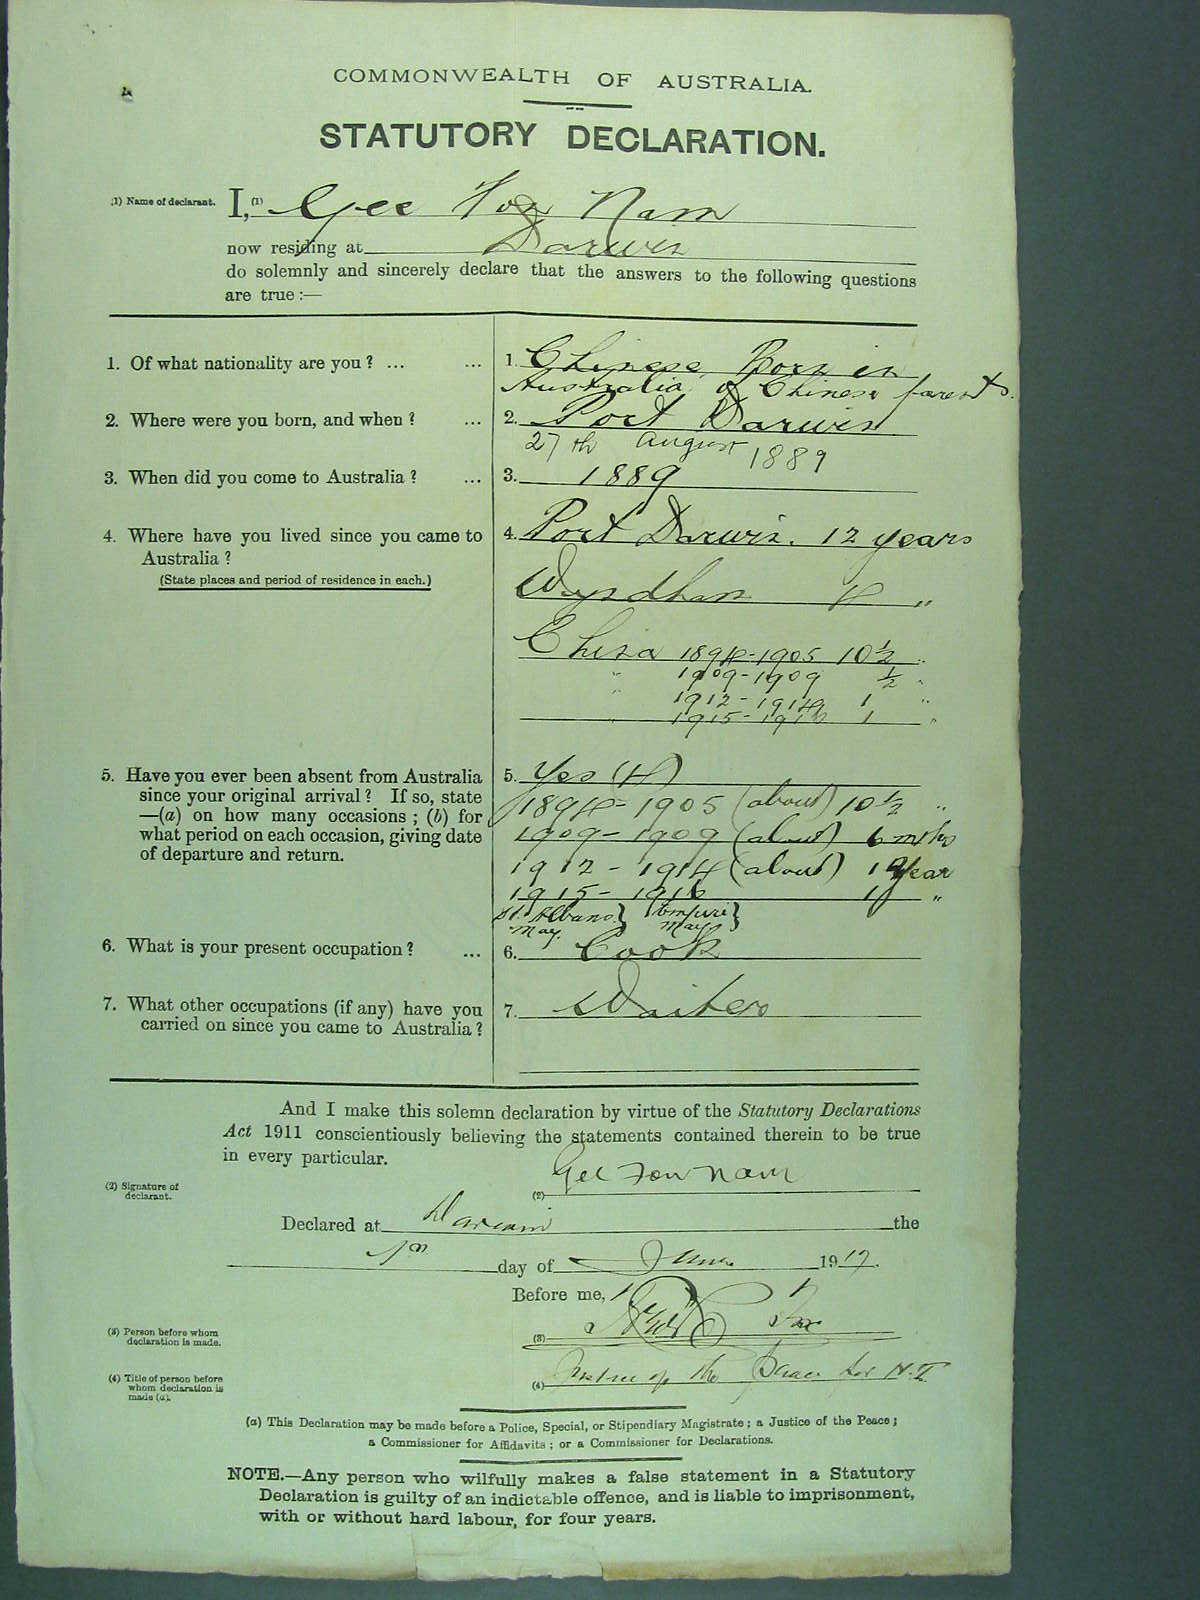 COMMONWEALTH OF AUSTRALIA.
STATUTORY DECLARATION.
(1) Name of declarant. I, (1) Gee Fon Nam
now residing at Darwin
do solemnly and sincerely declare that the answers to the following questions
are true :—
1. Of what nationality are you ? ... ... 1. Chinese Born in
Australia of Chinese parents.
2. Where were you born, and when ? ... 2. Port Darwin
27th August 1889
3. When did you come to Australia ? ... 3. 1889
4. Where have you lived since you came to 4. Port Darwin. 12 years
Australia ?
(State places and period of residence in each.) Wyndham 4 "
China 1894-1905 10½ "
" 1909-1909 ½ "
" 1912-1914 1 "
" 1915-1916 1 "
5. Have you ever been absent from Australia 5. Yes (4)
since your original arrival ? If so, state 1894-1905 (about) 10½ "
—(a) on how many occasions ; (b) for
what period on each occasion, giving date 1909-1909 (about) 6 mths
of departure and return. 1912-1914 (about) 1 Year
1915-1916 1 "
St. Albans } Empire }
May. May
6. What is your present occupation ? ... 6. Cook
7. What other occupations (if any) have you 7. Waiter
carried on since you came to Australia ?
And I make this solemn declaration by virtue of the Statutory Declarations
Act 1911 conscientiously believing the statements contained therein to be true
in every particular.
(2) Signature of
declarant. (2) Gee Fon Nam
Declared at Darwin the
day of June 1917.
Before me,
(3) Person before whom
declaration is made. (3)
(4) Title of person before
whom declaration is
made (a). (4) Justice of the Peace for N.T.
(a) This Declaration may be made before a Police, Special, or Stipendiary Magistrate ; a Justice of the Peace ;
a Commissioner for Affidavits ; or a Commissioner for Declarations.
NOTE.—Any person who wilfully makes a false statement in a Statutory
Declaration is guilty of an indictable offence, and is liable to imprisonment,
with or without hard labour, for four years.